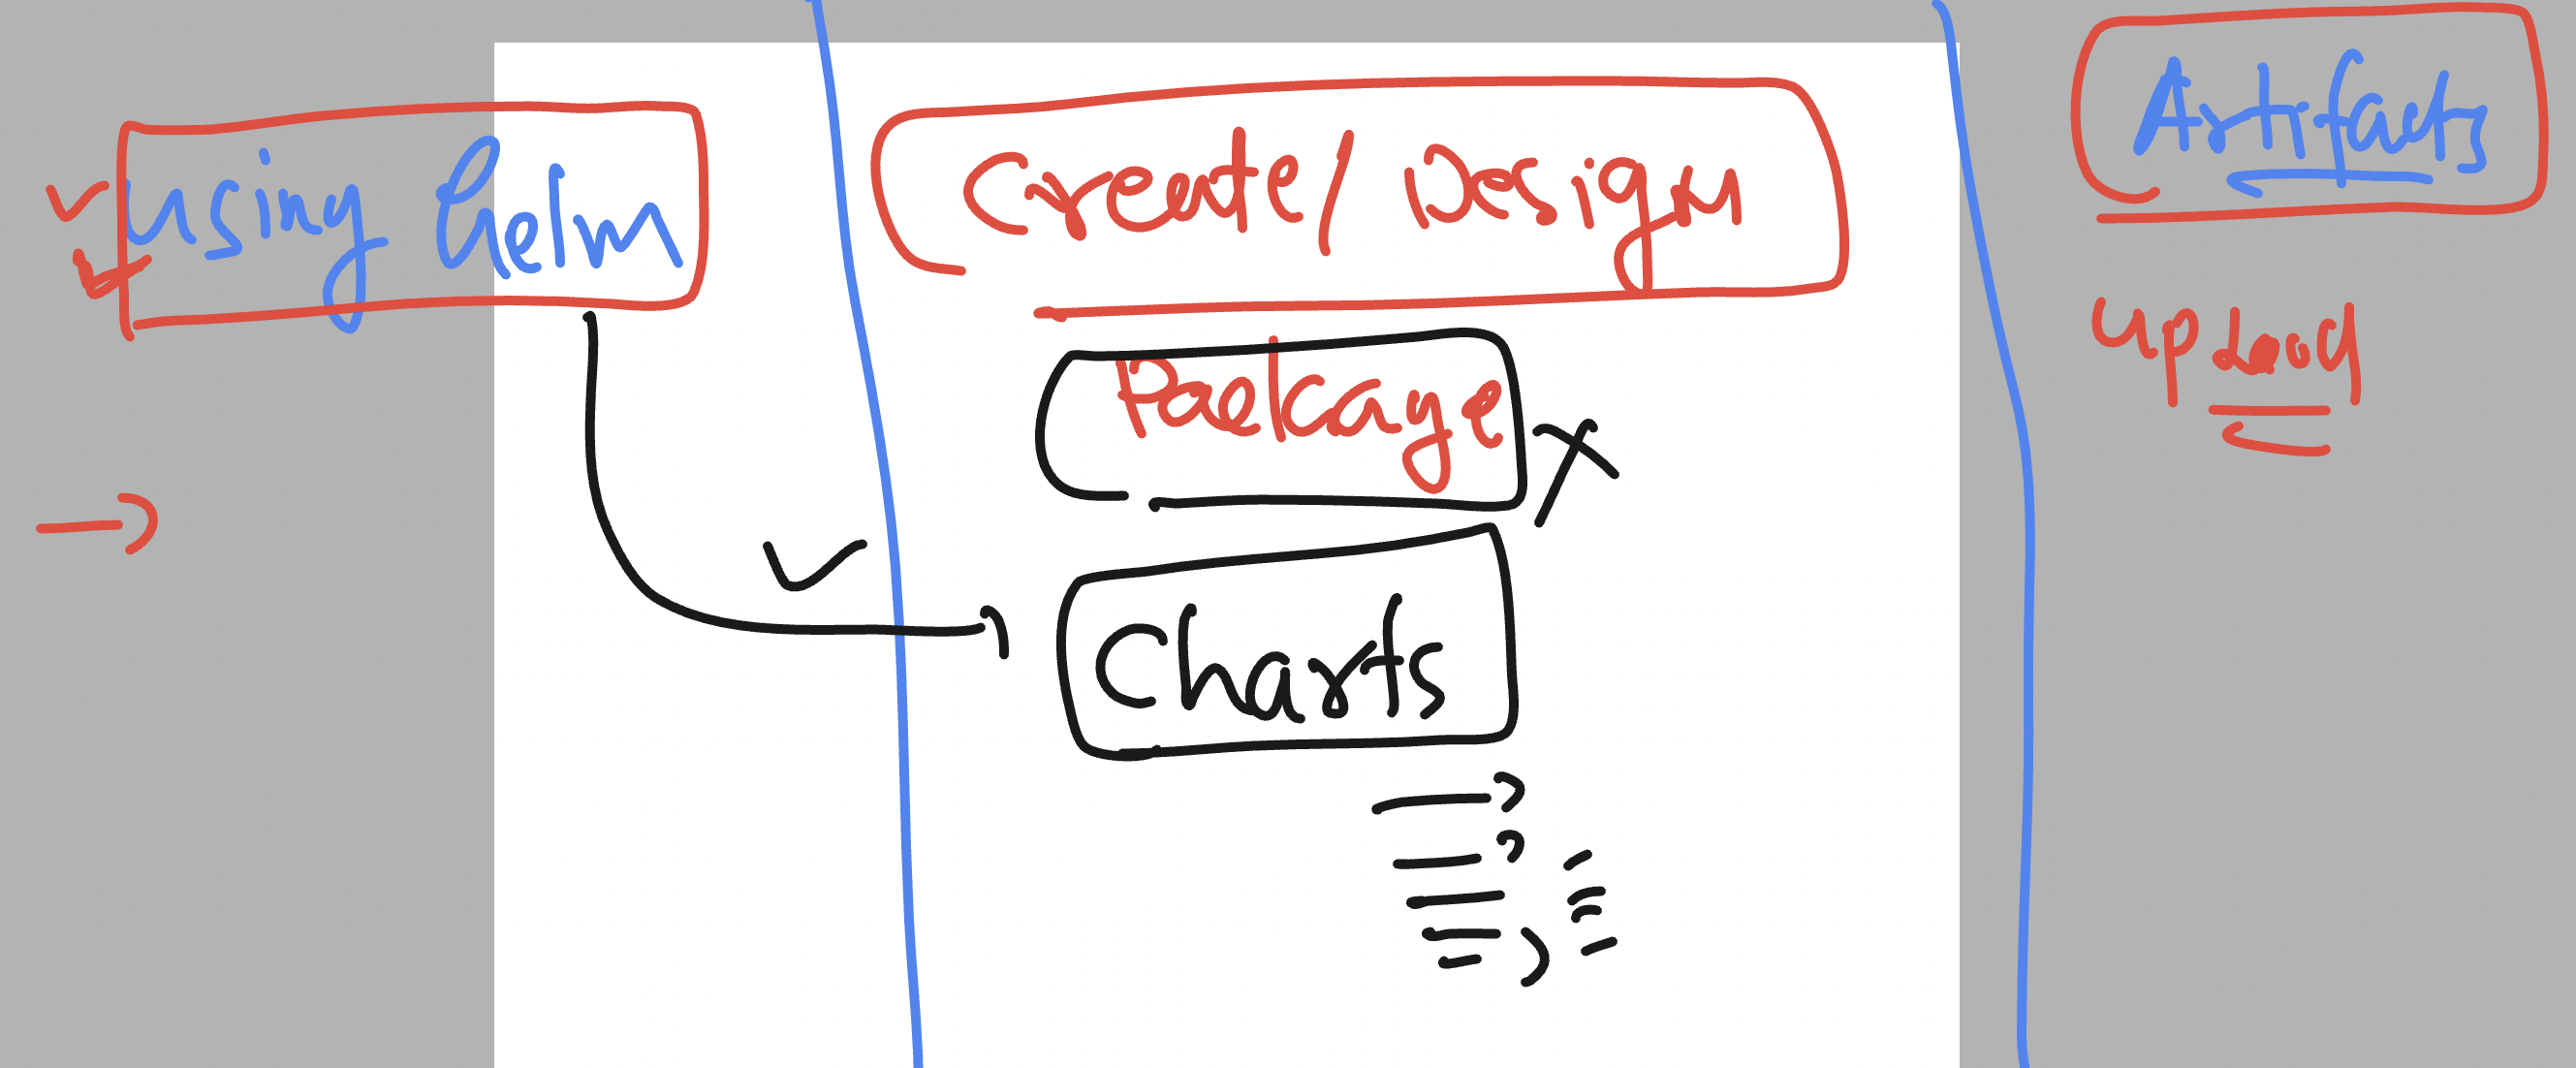 using helm
Create/Design
Package
Charts
Artifacts
upload